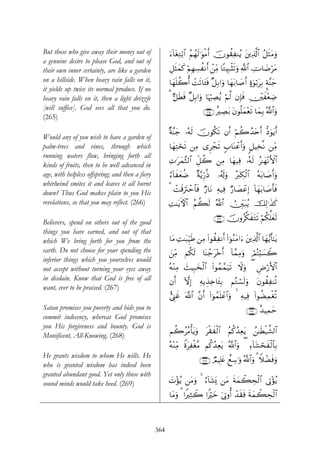 But those who give away their money out of
a genuine desire to please God, and out of
their own inner certainty, are like a garden
on a hillside. When heavy rain falls on it,
it yields up twice its normal produce. If no
heavy rain falls on it, then a light drizzle
[will suffice]. God sees all that you do.
(265)
Would any of you wish to have a garden of
palm-trees and vines, through which
running waters flow, bringing forth all
kinds of fruits, then to be well advanced in
age, with helpless offspring; and then a fiery
whirlwind smites it and leaves it all burnt
down? Thus God makes plain to you His
revelations, so that you may reflect. (266)
Believers, spend on others out of the good
things you have earned, and out of that
which We bring forth for you from the
earth. Do not choose for your spending the
inferior things which you yourselves would
not accept without turning your eyes away
in disdain. Know that God is free of all
want, ever to be praised. (267)
Satan promises you poverty and bids you to
commit indecency, whereas God promises
you His forgiveness and bounty. God is
Munificent, All-Knowing. (268)
He grants wisdom to whom He wills. He
who is granted wisdom has indeed been
granted abundant good. Yet only those with
sound minds would take heed. (269)
وَمَثَلُ ٱلَّذِينَ يُنفِقُونَ أَمْوَٰلَهُمُ ٱبْتِغَآءَ
مَرْضَاتِ ٱللَّهِ وَتَثْبِيتًا مِّنْ أَنفُسِهِمْ كَمَثَلِ
جَنَّةٍۭ بِرَبْوَةٍ أَصَابَهَا وَابِلٌ فَـَٔاتَتْ أُكُلَهَا
ضِعْفَيْنِ فَإِن لَّمْ يُصِبْهَا وَابِلٌ فَطَلٌّ ۗ
وَٱللَّهُ بِمَا تَعْمَلُونَ بَصِيرٌ ﴿٢٦٥﴾
أَيَوَدُّ أَحَدُكُمْ أَن تَكُونَ لَهُۥ جَنَّةٌ
مِّن نَّخِيلٍ وَأَعْنَابٍ تَجْرِى مِن تَحْتِهَا
ٱلْأَنْهَٰرُ لَهُۥ فِيهَا مِن كُلِّ ٱلثَّمَرَٰتِ
وَأَصَابَهُ ٱلْكِبَرُ وَلَهُۥ ذُرِّيَّةٌ ضُعَفَآءُ
فَأَصَابَهَآ إِعْصَارٌ فِيهِ نَارٌ فَٱحْتَرَقَتْ ۗ
كَذَٰلِكَ يُبَيِّنُ ٱللَّهُ لَكُمُ ٱلْـَٔايَٰتِ
لَعَلَّكُمْ تَتَفَكَّرُونَ ﴿٢٦٦﴾
يَٰٓأَيُّهَا ٱلَّذِينَ ءَامَنُوٓا۟ أَنفِقُوا۟ مِن طَيِّبَٰتِ مَا
كَسَبْتُمْ وَمِمَّآ أَخْرَجْنَا لَكُم مِّنَ
ٱلْأَرْضِ ۖ وَلَا تَيَمَّمُوا۟ ٱلْخَبِيثَ مِنْهُ
تُنفِقُونَ وَلَسْتُم بِـَٔاخِذِيهِ إِلَّآ أَن
تُغْمِضُوا۟ فِيهِ ۚ وَٱعْلَمُوٓا۟ أَنَّ ٱللَّهَ غَنِىٌّ
حَمِيدٌ ﴿٢٦٧﴾
ٱلشَّيْطَٰنُ يَعِدُكُمُ ٱلْفَقْرَ وَيَأْمُرُكُم
بِٱلْفَحْشَآءِ ۖ وَٱللَّهُ يَعِدُكُم مَّغْفِرَةً مِّنْهُ
وَفَضْلًا ۗ وَٱللَّهُ وَٰسِعٌ عَلِيمٌ ﴿٢٦٨﴾
يُؤْتِى ٱلْحِكْمَةَ مَن يَشَآءُ ۚ وَمَن يُؤْتَ
ٱلْحِكْمَةَ فَقَدْ أُوتِىَ خَيْرًا كَثِيرًا ۗ وَمَا
364